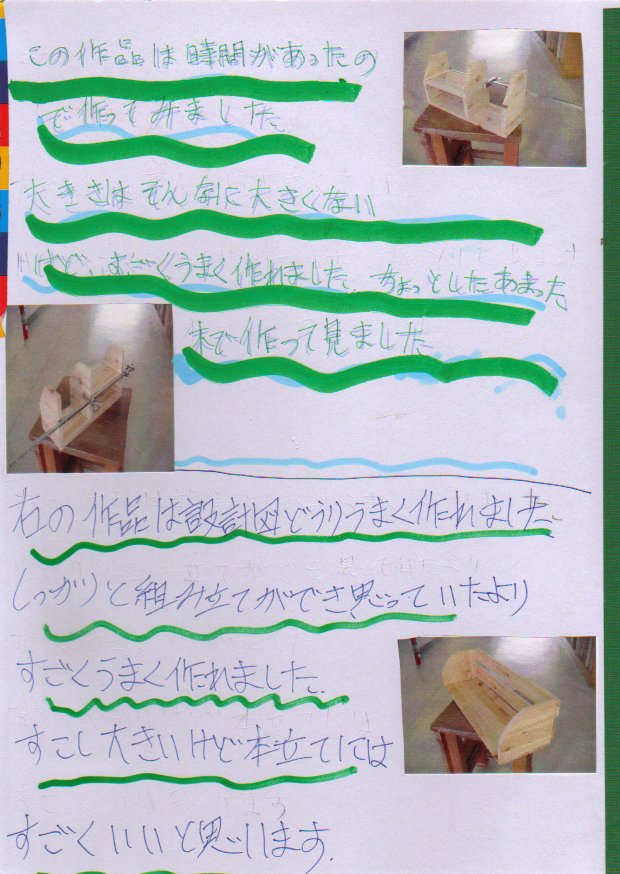 この作品は時間があったの
で作ってみました。
大きさはそんなに大きくない
けど、すごくうまく作れました。ちょっとしたあまった
木で作って見ました
右の作品は設計図どうりうまく作れました。
しっかりと組み立てができ思っていたより
すごくうまく作れました。
すこし大きいけど本立てには
すごくいいと思います。